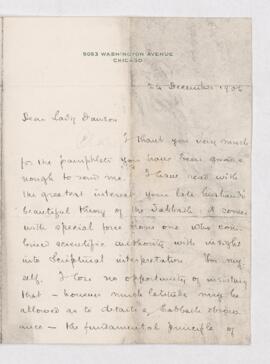 5053 WASHINGTON AVENUE
CHICAGO
24 December 1906
Dear Lady Dawson
I thank you very much
for the pamphlets you have been good e-
nough to send me. I have read with
the greatest interest your late husband's
beautiful theory of the Sabbath. It comes
with special force from one who com-
bined scientific authority with insight
into Scriptural interpretation. For my
self, I lose no opportunity of insisting
that - however much latitude may be
allowed as to details, Sabbath observ-
ance - the fundamental principle of